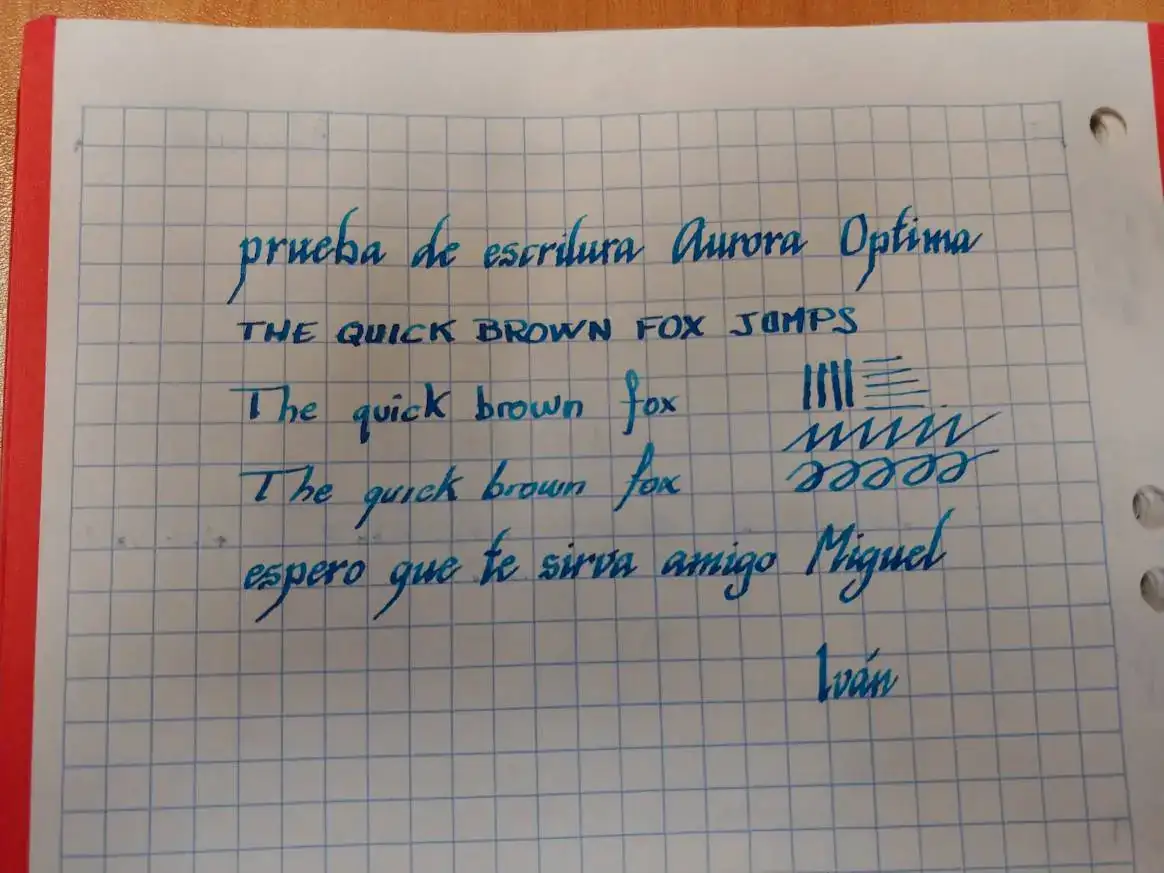 prueba de escritura Aurora Optima
THE QUICK BROWN FOX JUMPS
The quick brown fox
The quick brown fox
espero que te sirva amigo Miguel
Iván